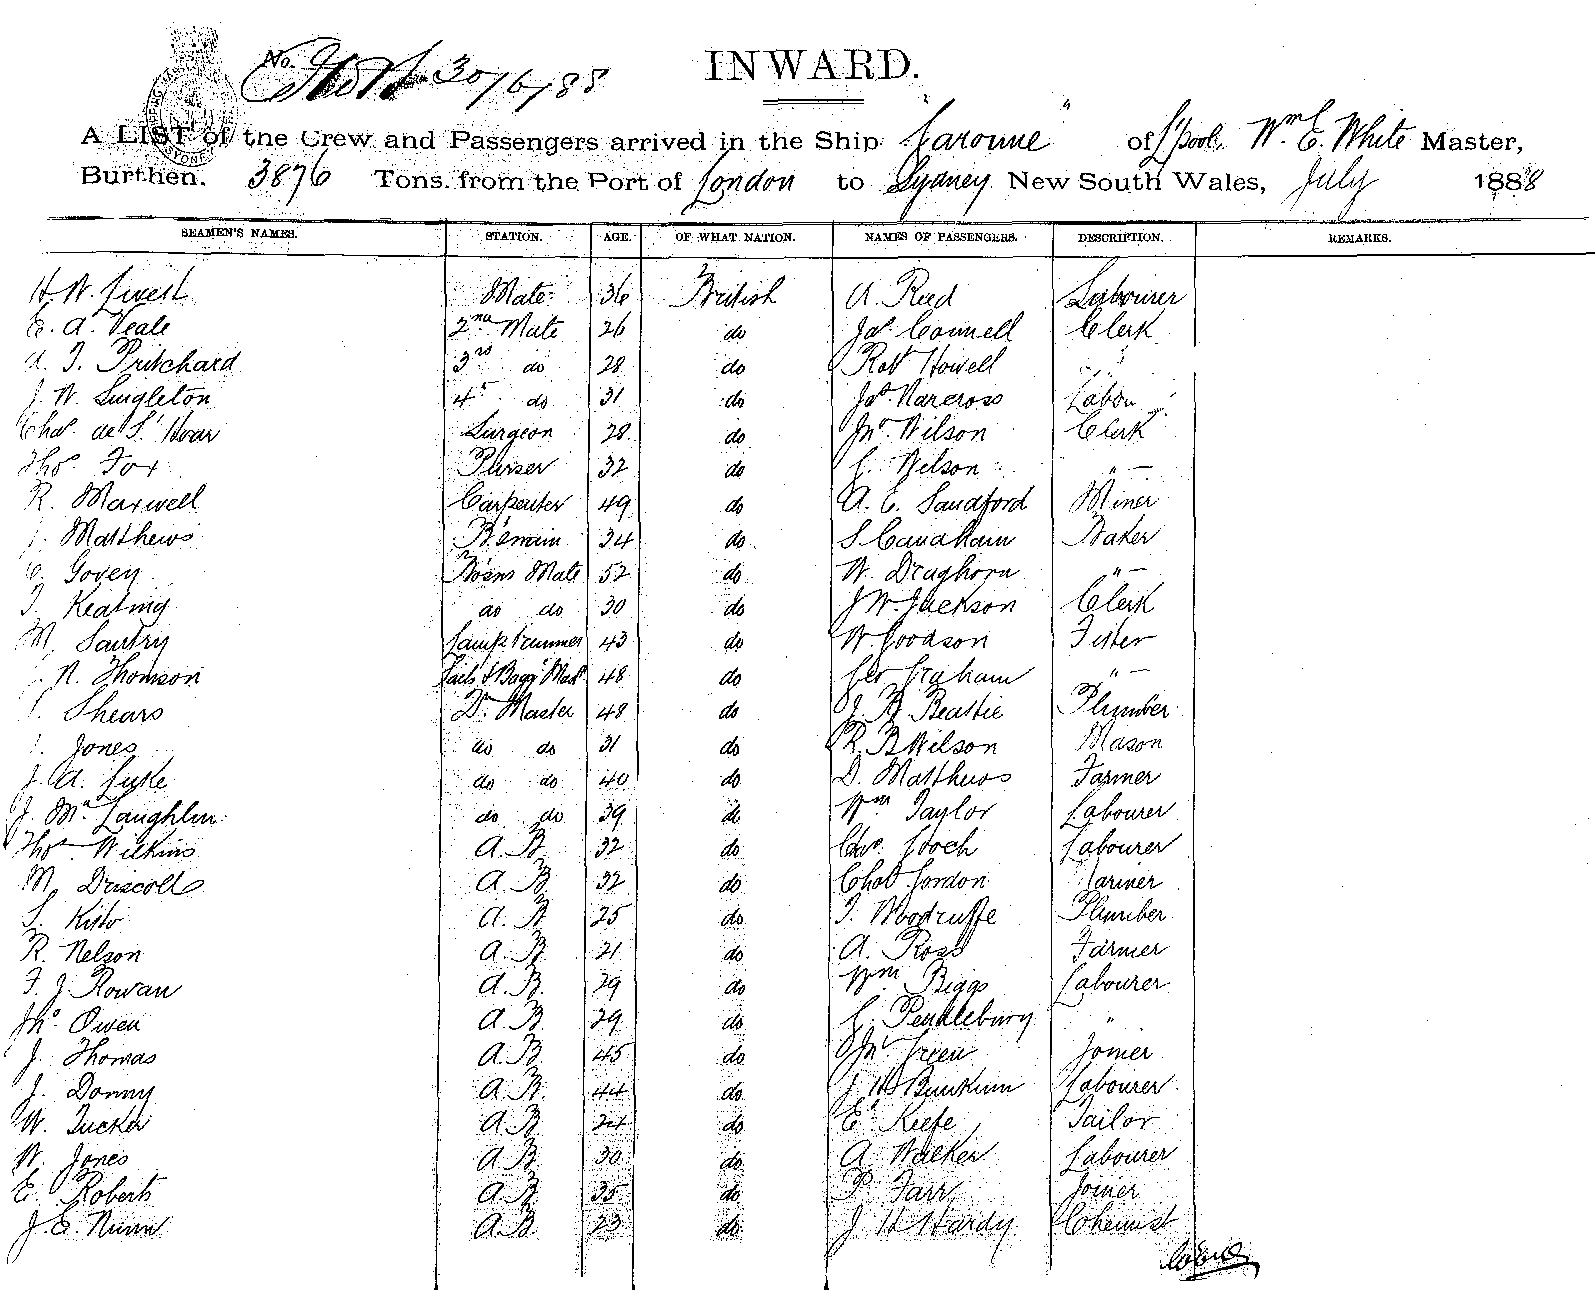 INWARD.
No. 30/6/88
A LIST of the Crew and Passengers arrived in the Ship "Garonne" of L'pool, Wm E. White Master,
Burthen. 3876 Tons. from the Port of London to Sydney New South Wales, July 1888
SEAMEN'S NAMES. STATION. AGE. OF WHAT NATION. NAMES OF PASSENGERS. DESCRIPTION. REMARKS.
H. W. Mate 36 British A. Reed Labourer
E. A. Veale 2nd Mate 26 do Jas Connell Clerk
A. T. Pritchard 3rd do 28 do Robt Howell "
J. W. Singleton 4th do 31 do Jas Narcross Labou
Chas de St Hoar Surgeon 28 do Jno Wilson Clerk
Thos Fox Purser 32 do Nelson "
R. Maxwell Carpenter 49 do A. E. Sandford Miner
J. Matthews B'swain 34 do S Canaham Baker
Govey Bo'sns Mate 52 do W. Draghorn "
T. Keating do do 30 do J W. Jackson Clerk
M. Santry Lamp trimmer 43 do W. Goodson Fitter
N. Thomson 48 do Geo Graham "
Shears Qr. Master 48 do J. B. Beattie Plumber
Jones do do 31 do R. B Wilson Mason
J. A. Luke do do 40 do D. Matthews Farmer
J. McLaughlin do do 39 do Wm Taylor Labourer
Thos Wilkins A. B 32 do Chas Gooch Labourer
M. Driscoll A. B 32 do Chas Gordon Mariner
S. Kisto A. B 25 do T. Woodruffe Plumber
R. Nelson A. B. 21 do A. Ross Farmer
F. J. Rowan A. B. 29 do Wm Biggs Labourer
Jno Owen A. B 29 do Pendlebury "
J. Thomas A. B. 45 do Jno Green Joiner
J. Donny A. B. 44 do J H Bunkum Labourer
W. Tucker A. B 24 do E. Keefe Tailor
W. Jones A. B 30 do A Walker Labourer
E. Roberts A. B 35 do P. Farr Joiner
J. E. Nunn A. B 23 do J. H Hardy Chemist